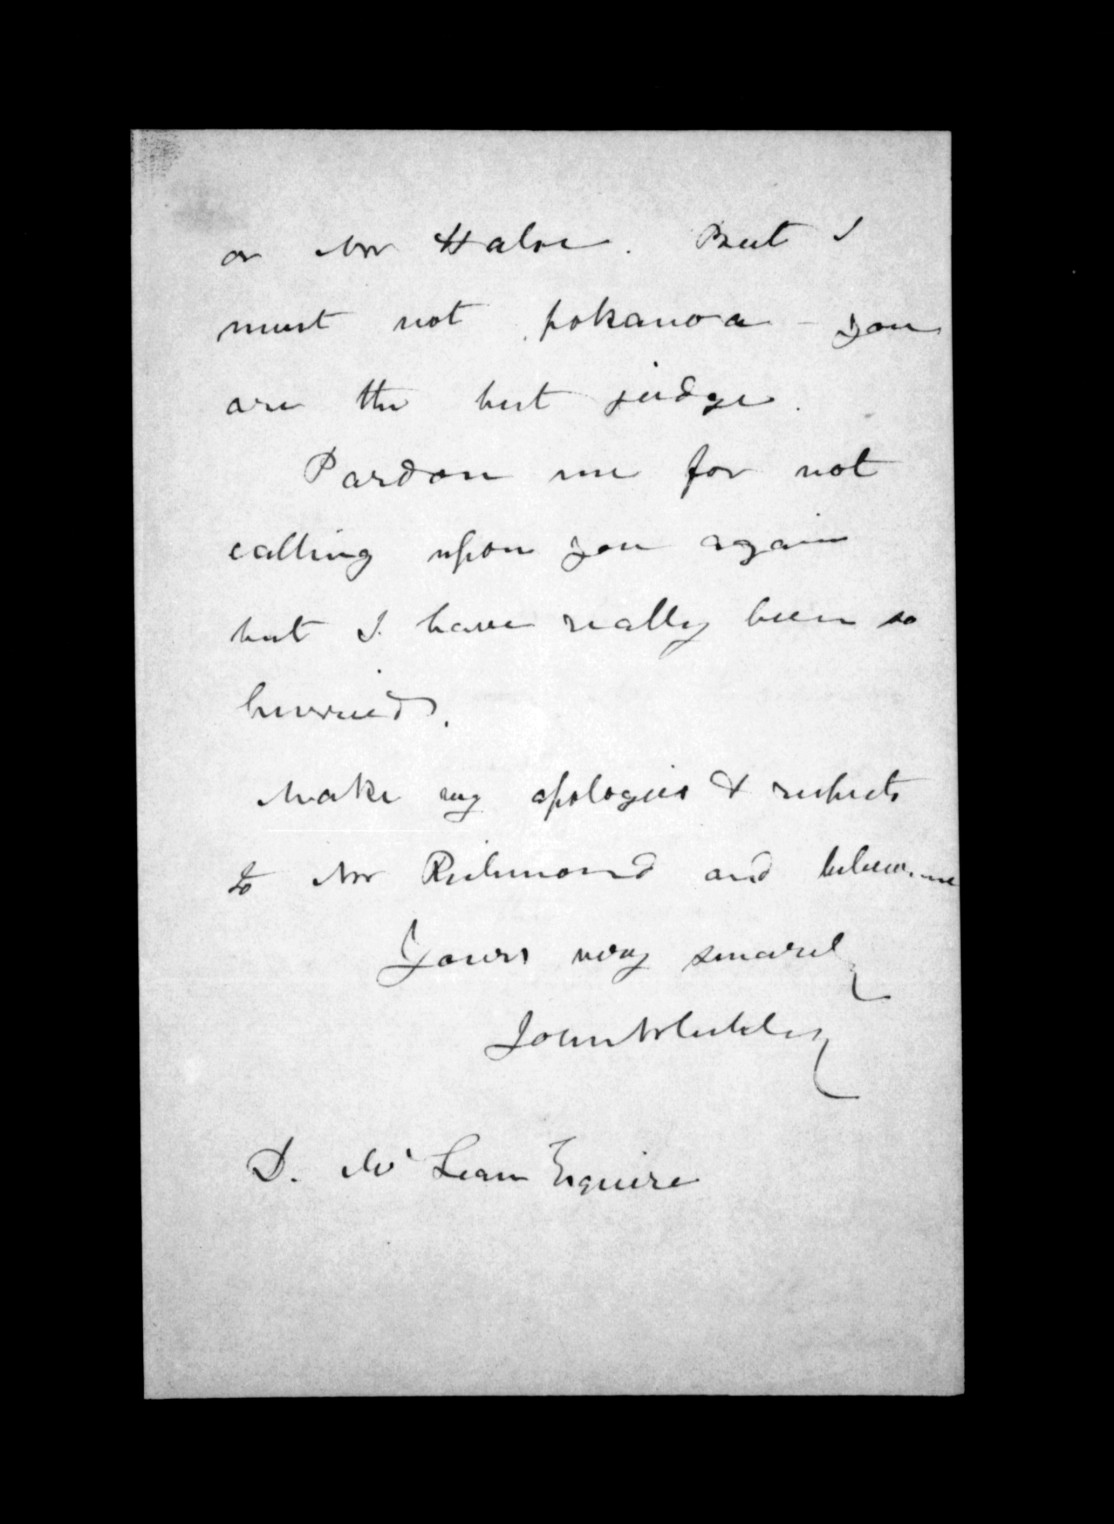 or Mr Halse. But I
must not pokanoa - you
are the best judge.
Pardon me for not
calling upon you again
but I have really been so
hurried.
Make my apologies & respects
to Mr Richmond and believe me
Yours very sincerely
John
D. McLean Esquire